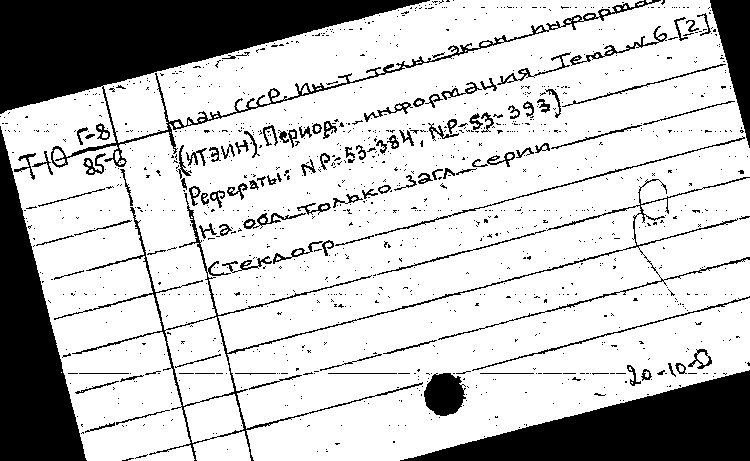 план СССР. Ин-т техн.-экон. информа
(ИТЭИН). Период. информация. Тема № 6 [2]
Рефераты: N.P-53-384, N.P-53-393)
На обл. только загл. серии
Стеклогр
Т-10 Г-8
85-6
20-10-53